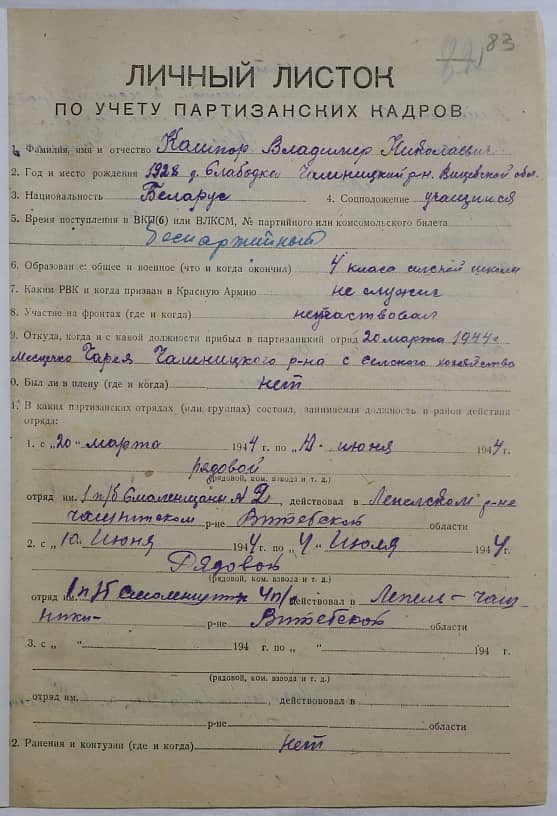 83
ЛИЧНЫЙ ЛИСТОК
ПО УЧЕТУ ПАРТИЗАНСКИХ КАДРОВ
1. Фамилия, имя и отчество Владимер Николаевич
2. Год и место рождения 1928 д. Слабодка Чашницкий р-н. Вицебской обл.
3. Национальность Беларус 4. Соцположение учащийся
5. Время поступления в ВКП(б) или ВЛКСМ, № партийного или комсомольского билета
Беспартийный
6. Образование: общее и военное (что и когда окончил) 4 класа сельской школы
7. Каким РВК и когда призван в Красную Армию не служил
8. Участие на фронтах (где и когда) неучаствовал
9. Откуда, когда и с какой должности прибыл в партизанский отряд 20 марта 1944 г
Месцечко Чарея Чашницкого р-на с селского хозяйства
0. Был ли в плену (где и когда) нет
1. В каких партизанских отрядах (или группах) состоял, занимаемая должность и район действия
отряда:
1. с „20" марта 1944 г по „10. июня 1944 г.
рядовой
(рядовой, ком. взвода и т. д.)
отряд им. 1 п/б Смаленщины № 2, действовал в Лепелском р-не
р-не Витебской области
2. с „10. Июня 1944 г. по „4" Июля 1944 г.
Рядовой
(рядовой, ком. взвода и т. д.)
отряд им. 1 п/б 4 п/о действовал в Лепел-Чаш-
ники- р-не Витебской области
3. с „ " 194 г. по „ " 194 г.
(рядовой, ком. взвода и т. д.)
отряд им. , действовал в
р-не области
2. Ранения и контузии (где и когда) нет